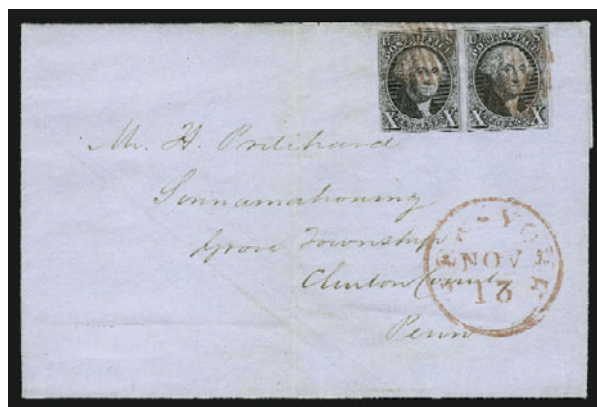 U S
POST OFFICE
X X
TEN CENTS
U S
POST OFFICE
X X
TEN CENTS
Mr. H. Pritchard
Sinnamahoning
Grove Township
Clinton County
Penn
NEW-YORK
NOV
12